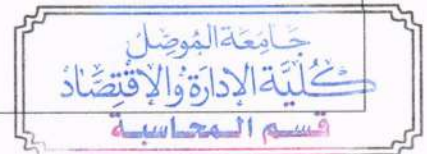 جَامِعَة المُوصِل
كُليَّة الإدَارَة وَالاقْتِصَاد
قسم المحاسبة